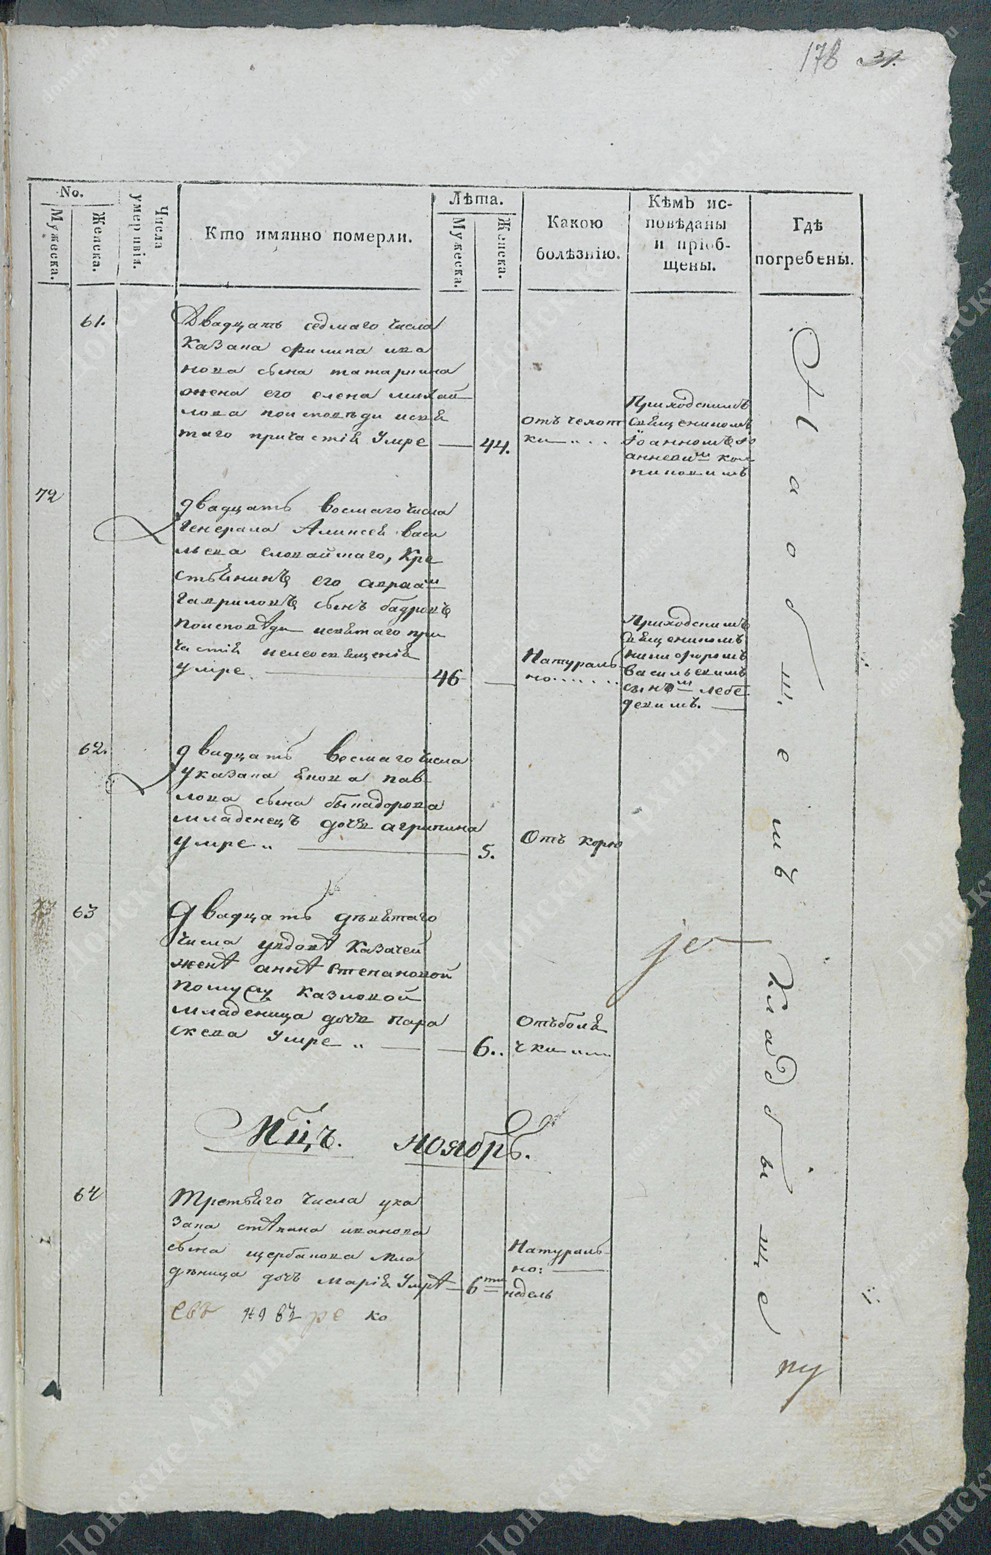 178 31.
No.
Мужеска.
Женска.
Числа умершвія.
Кто имянно померли.
Лѣта.
Мужеска.
Женска.
Какою
болѣзнію.
Кѣмъ ис-
повѣданы
и пріоб-
щены.
Гдѣ
погребены.
61.
Двадцать седмаго числа
казака филипа ива
нова сына татаркина
жена его елена михай
лова поисповѣди исвя
таго причастія умре
44.
отъ чехот
ки
Приходскимъ
священикомъ
Іоанномъ Іо
анневим
72
двадцать восмаго числа
Генерала Алексея васи
льева иловайскаго, кре
стьянинъ его авраам
гавриловъ сынъ
поисповѣди исвятаго при
частія иелеосвященія
умре
46
Натураль
но
Приходскимъ
священикомъ
никифоромъ
васильевимъ
сыном лебе
девимъ.
62.
двадцать восмаго числа
у казака якова пав
лова сына
младенецъ дочь агрипина
умре
5.
Отъ корю
63
двадцать девятаго
числа увдовѣ казачей
женѣ аннѣ степановой
помужу казловой
младеница дочь пара
скева умре
6.
Отъболя
чки
Мцъ. ноябръ.
64
третьяго числа у ка
зака стѣпана иванова
сына щербакова мла
деница дочь марія умре
6ти недель
Натураль
но:
На общемъ кладбище